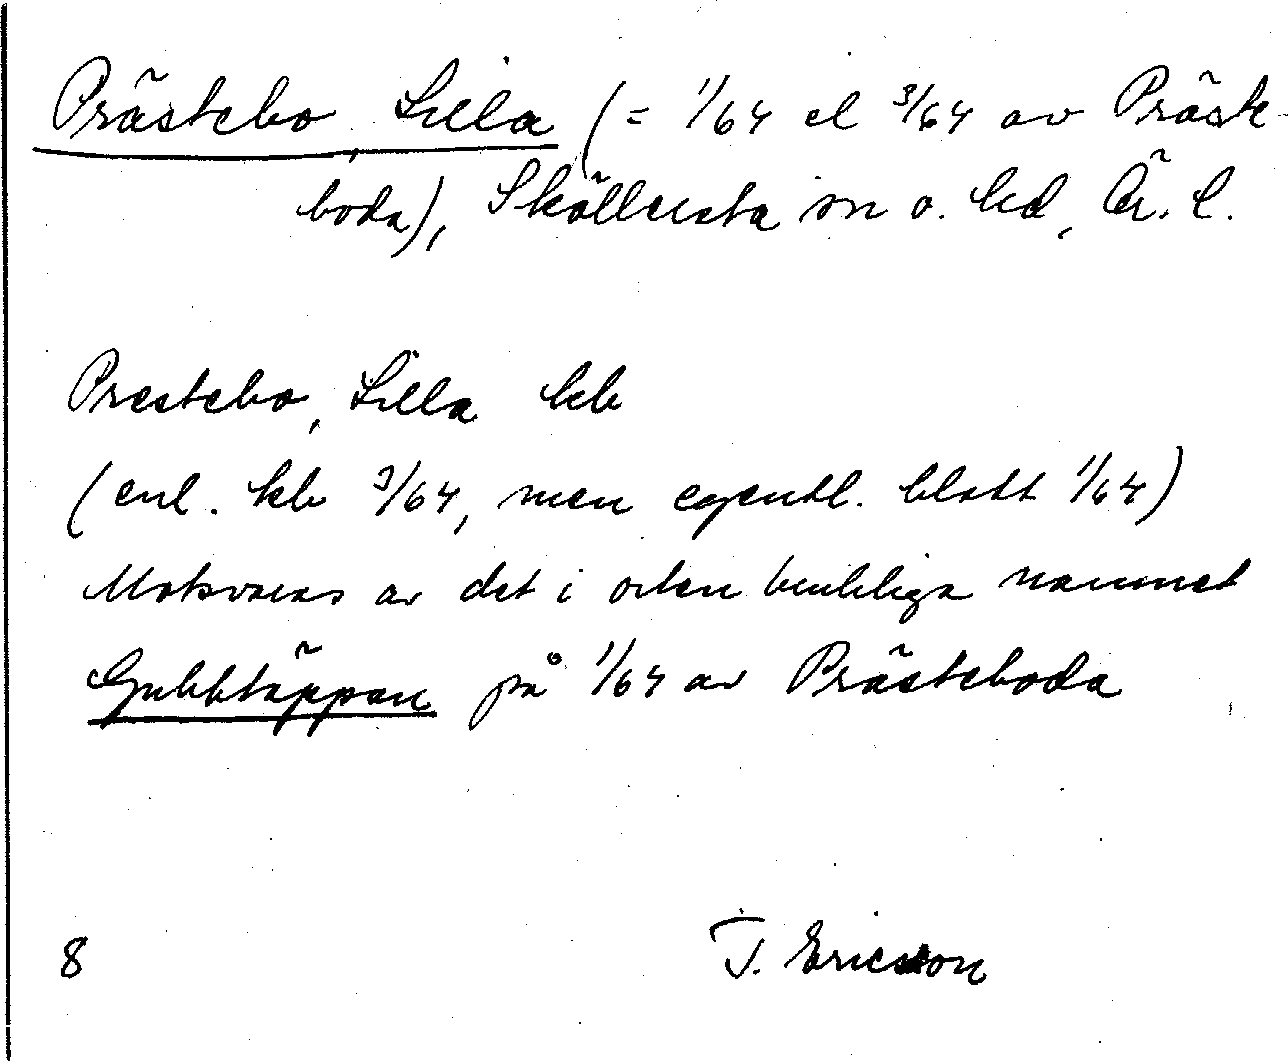 Prästebo, Lilla (= 1/64 el 3/64 av Präste-
boda), Sköllersta sn o. hd, Ör. l.
Prestebo, Lilla kb
(enl. kb 3/64, men egentl. blott 1/64)
Motsvaras av det i orten brukliga namnet
Gubbtäppan på 1/64 av Prästeboda
8
T. Ericsson